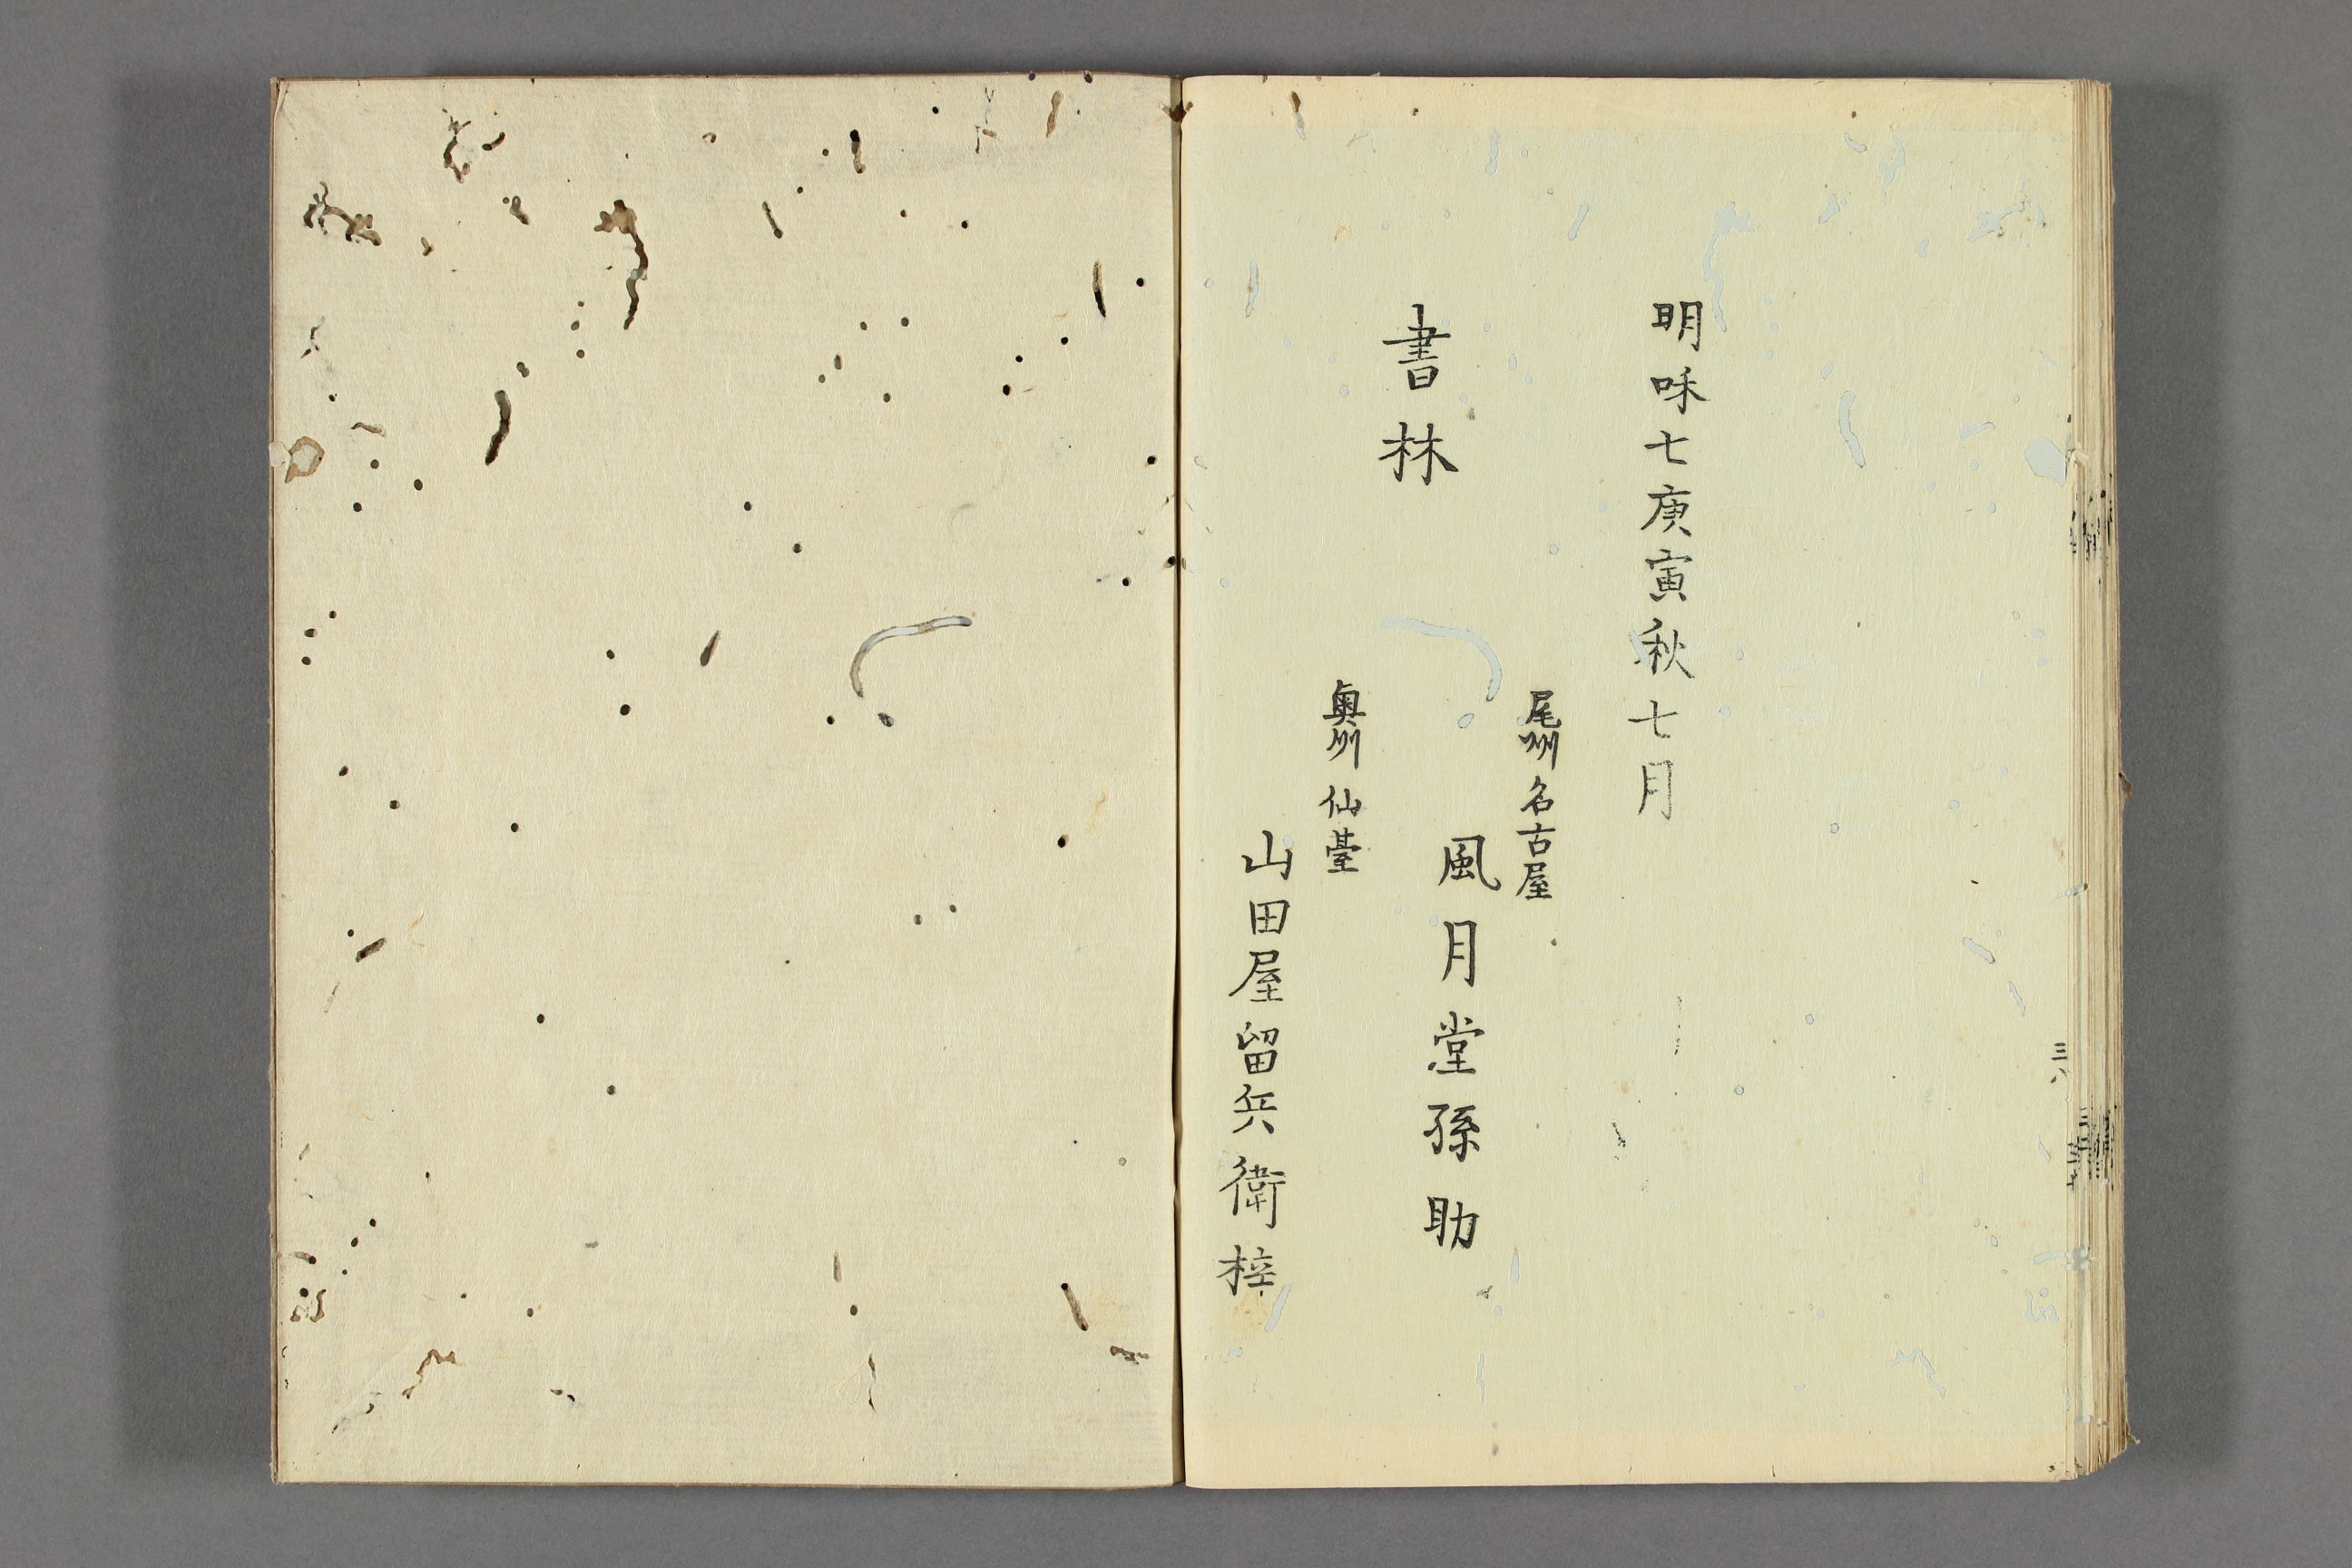 明咊七庚寅秋七月
書林
尾州名古屋
風月堂孫助
奥州仙臺
山田屋留兵衛梓